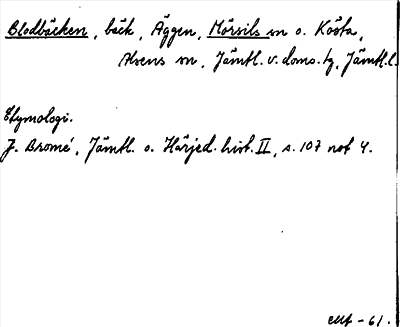 Blodbäcken, bäck, Äggen, Mörsils sn o. Kösta,
Hvens sn, Jämtl. v. doms. tg, Jämtl. l.
Etymologi.
J. Bromé, Jämtl. o. Härjed. hist. II, s. 107 not 4.
- 61.